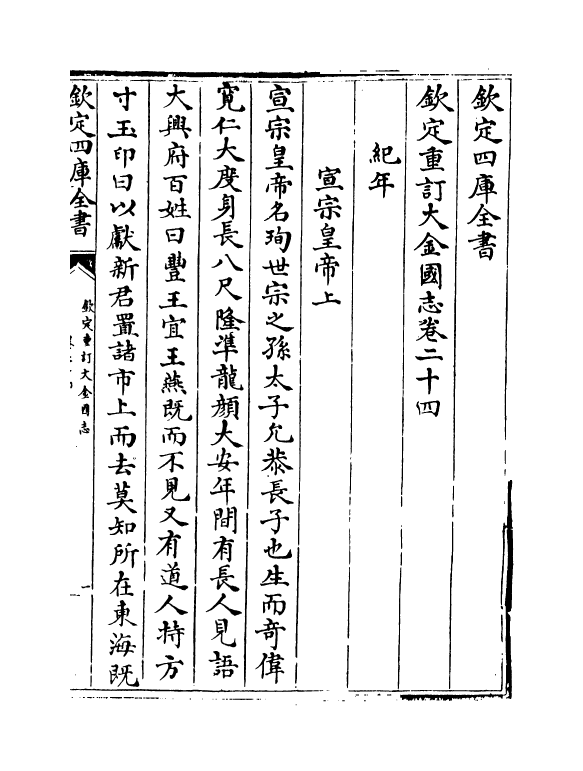 欽定四庫全書
欽定重訂大金國志卷二十四
紀年
宣宗皇帝上
宣宗皇帝名珣世宗之孫太子允恭長子也生而奇偉
寛仁大度身長八尺隆準龍顔大安年間有長人見語
大興府百姓曰豐王宜王燕既而不見又有道人持方
寸玉印曰以獻新君置諸市上而去莫知所在東海既
欽定四庫全書
欽定重訂大金國志
一